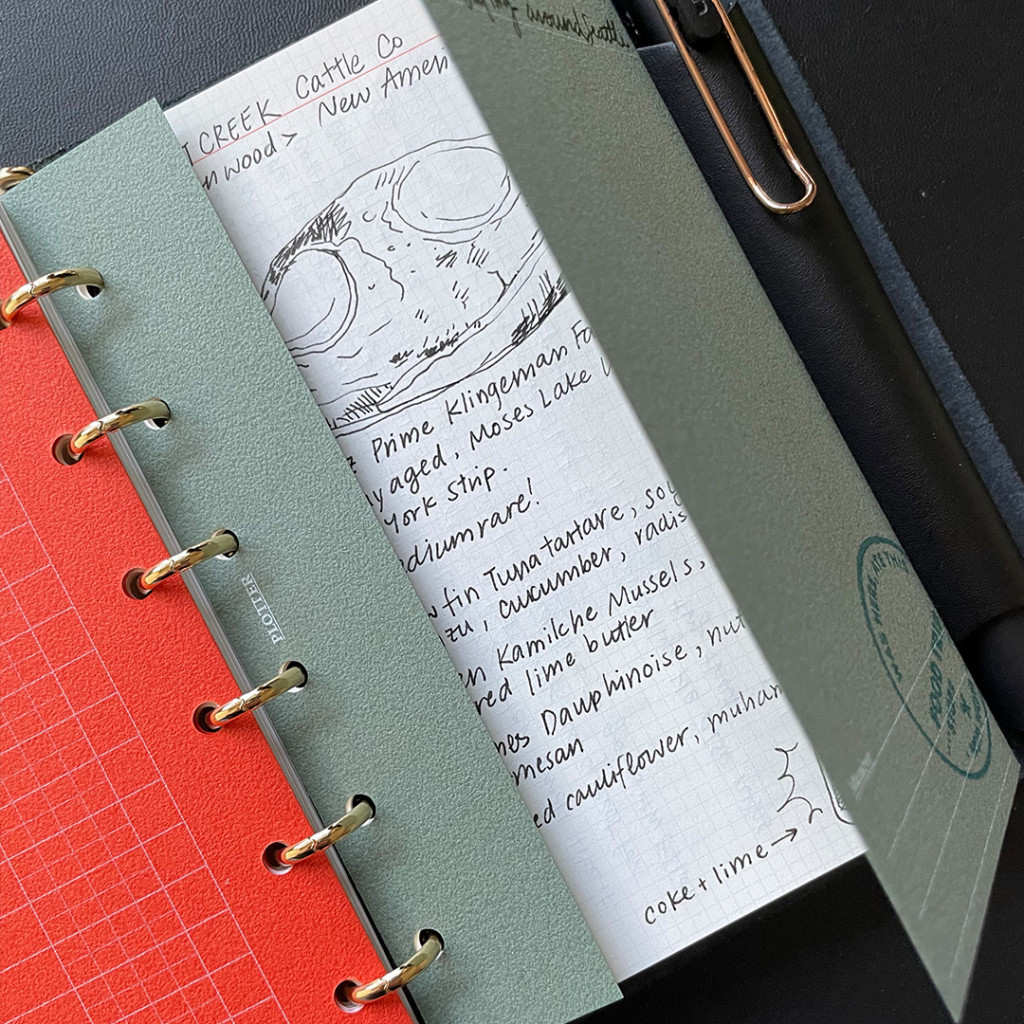 around Seattle
CREEK Cattle Co
wood> New Ameri
Prime Klingeman Fa
y aged, Moses Lake
York Strip.
dium rare!
fin Tuna tartare, soy
zu, cucumber, radis
en Kamilche Mussels,
red lime butter
nes Dauphinoise, nut
mesan
ed cauliflower, muham
coke + lime →
PLOTTER
WAS HERE, ATE THIS
FOOD